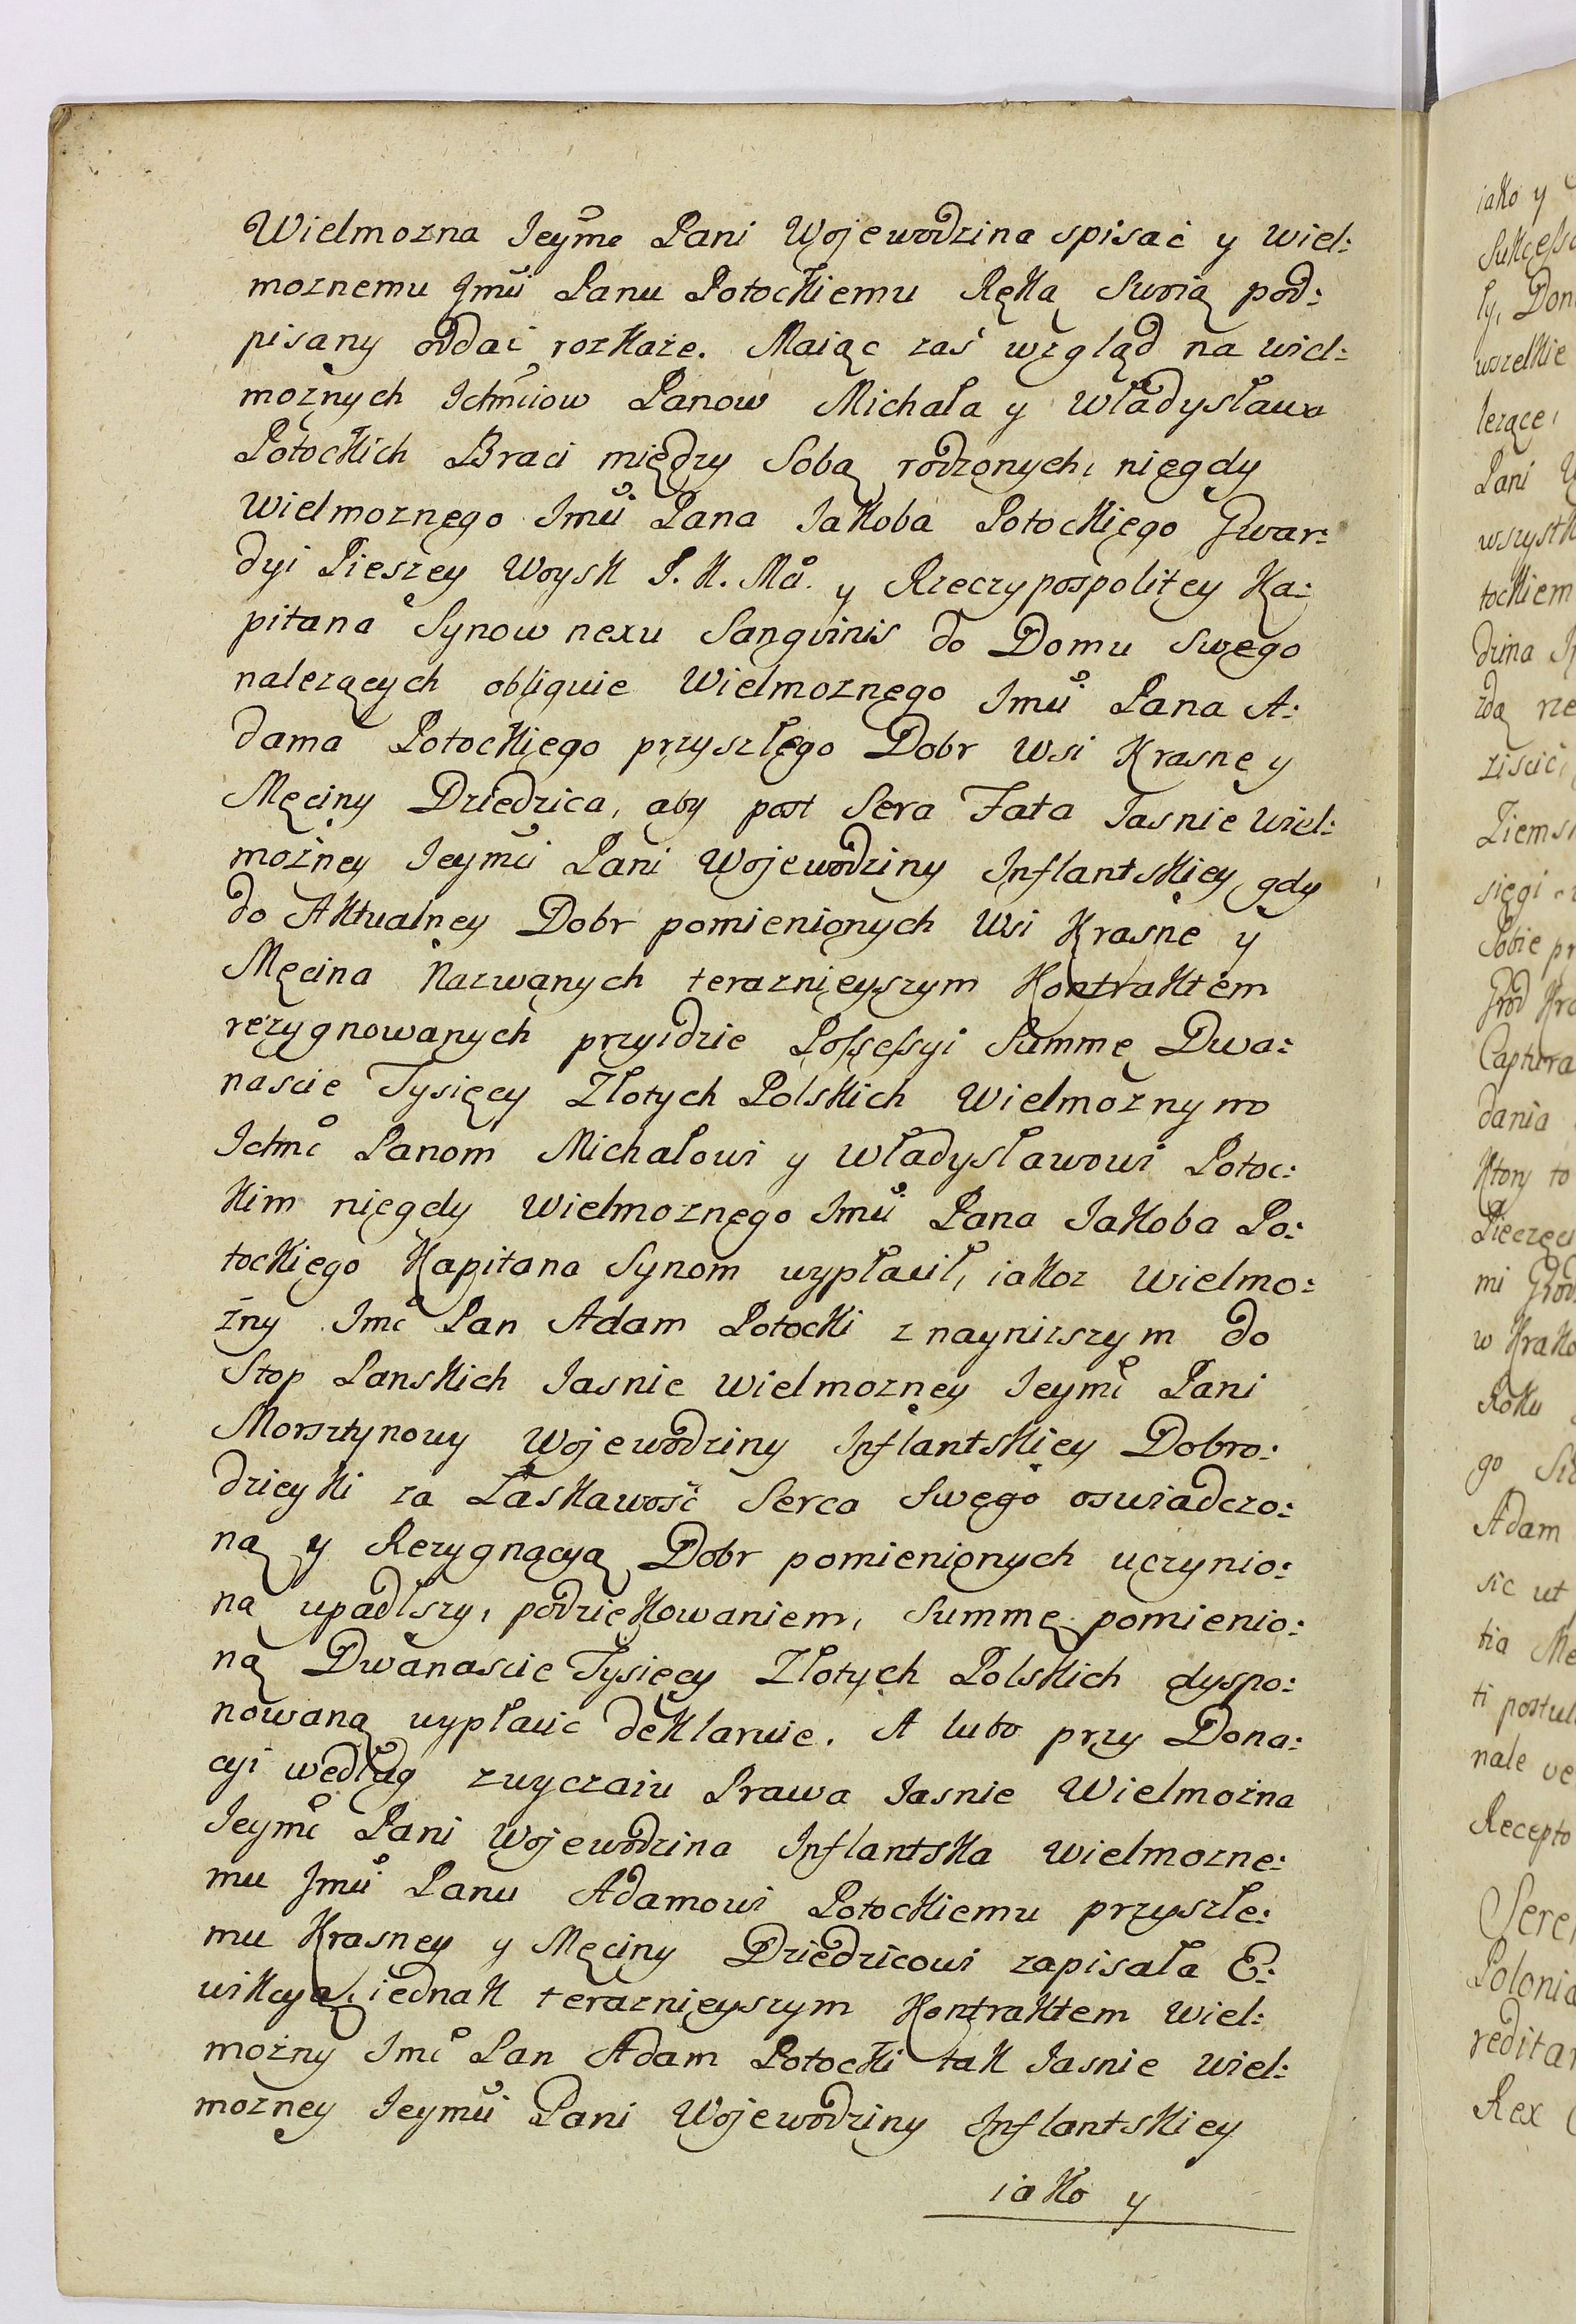 Wielmozna Jeymc Pani Wojewodzina spisać y Wiel:
moznemu Jmci Panu Potockiemu Ręką Swoią pod:
pisany oddać rozkaże. Maiąc zaś wzgląd na wiel:
możnych Ichmciow Panow Michała y Władysława
Potockich Braci między Sobą rodzonych, niegdy
Wielmoznego Jmci Pana Jakoba Potockiego Gwar:
dyi Pieszey Woysk J. K. Mci y Rzeczypospolitey Ka:
pitana Synow nexu Sangvinis do Domu Swego
nalezących obliguie Wielmoznego Jmci Pana A:
dama Potockiego przyszłego Dobr Wsi Krasne y
Męciny Dziedzica, aby post Sera Fata Jasnie Wiel:
możney Jeymci Pani Wojewodziny Inflantskiey, gdy
do Aktualney Dobr pomienionych Wsi Krasne y
Męcina Nazwanych teraznieyszym Kontraktem
rezygnowanych przyidzie Possessyi Summę Dwa:
nascie Tysięcy Złotych Polskich Wielmożnym
Ichmc Panom Michałowi y Władysławowi Potoc:
kim niegdy Wielmoznego Jmci Pana Jakoba Po:
tockiego Kapitana Synom wypłacił, iakoz Wielmo:
żny Jmc Pan Adam Potocki z naynizszym do
Stop Panskich Jasnie Wielmozney Jeymc Pani
Morsztynowy Wojewodziny Inflantskiey Dobro:
dzieyki za Łaskawość Serca Swego oswiadczo:
ną y Rezygnacyą Dobr pomienionych uczynio:
ną upadłszy, podziękowaniem, Summę pomienio:
ną Dwanascie Tysięcy Złotych Polskich dyspo:
nowaną wypłacic deklaruie. A lubo przy Dona:
cyi według zwyczaiu Prawa Jasnie Wielmożna
Jeymc Pani Wojewodzina Inflantska Wielmozne:
mu Jmci Panu Adamowi Potockiemu przyszłe:
mu Krasney y Męciny Dziedzicowi zapisała E:
wikcyą, iednak teraznieyszym Kontraktem Wiel:
możny Jmc Pan Adam Potocki tak Jasnie Wiel:
mozney Jeymci Pani Wojewodziny Inflantskiey
iako y
iako y
wszelkie
Pani
tockiem
Sobie pr
dania
Ktory to
w Krako
Roku
Adam
sic ut
tia Me
nale ve
Recepto
Polonia
Rex